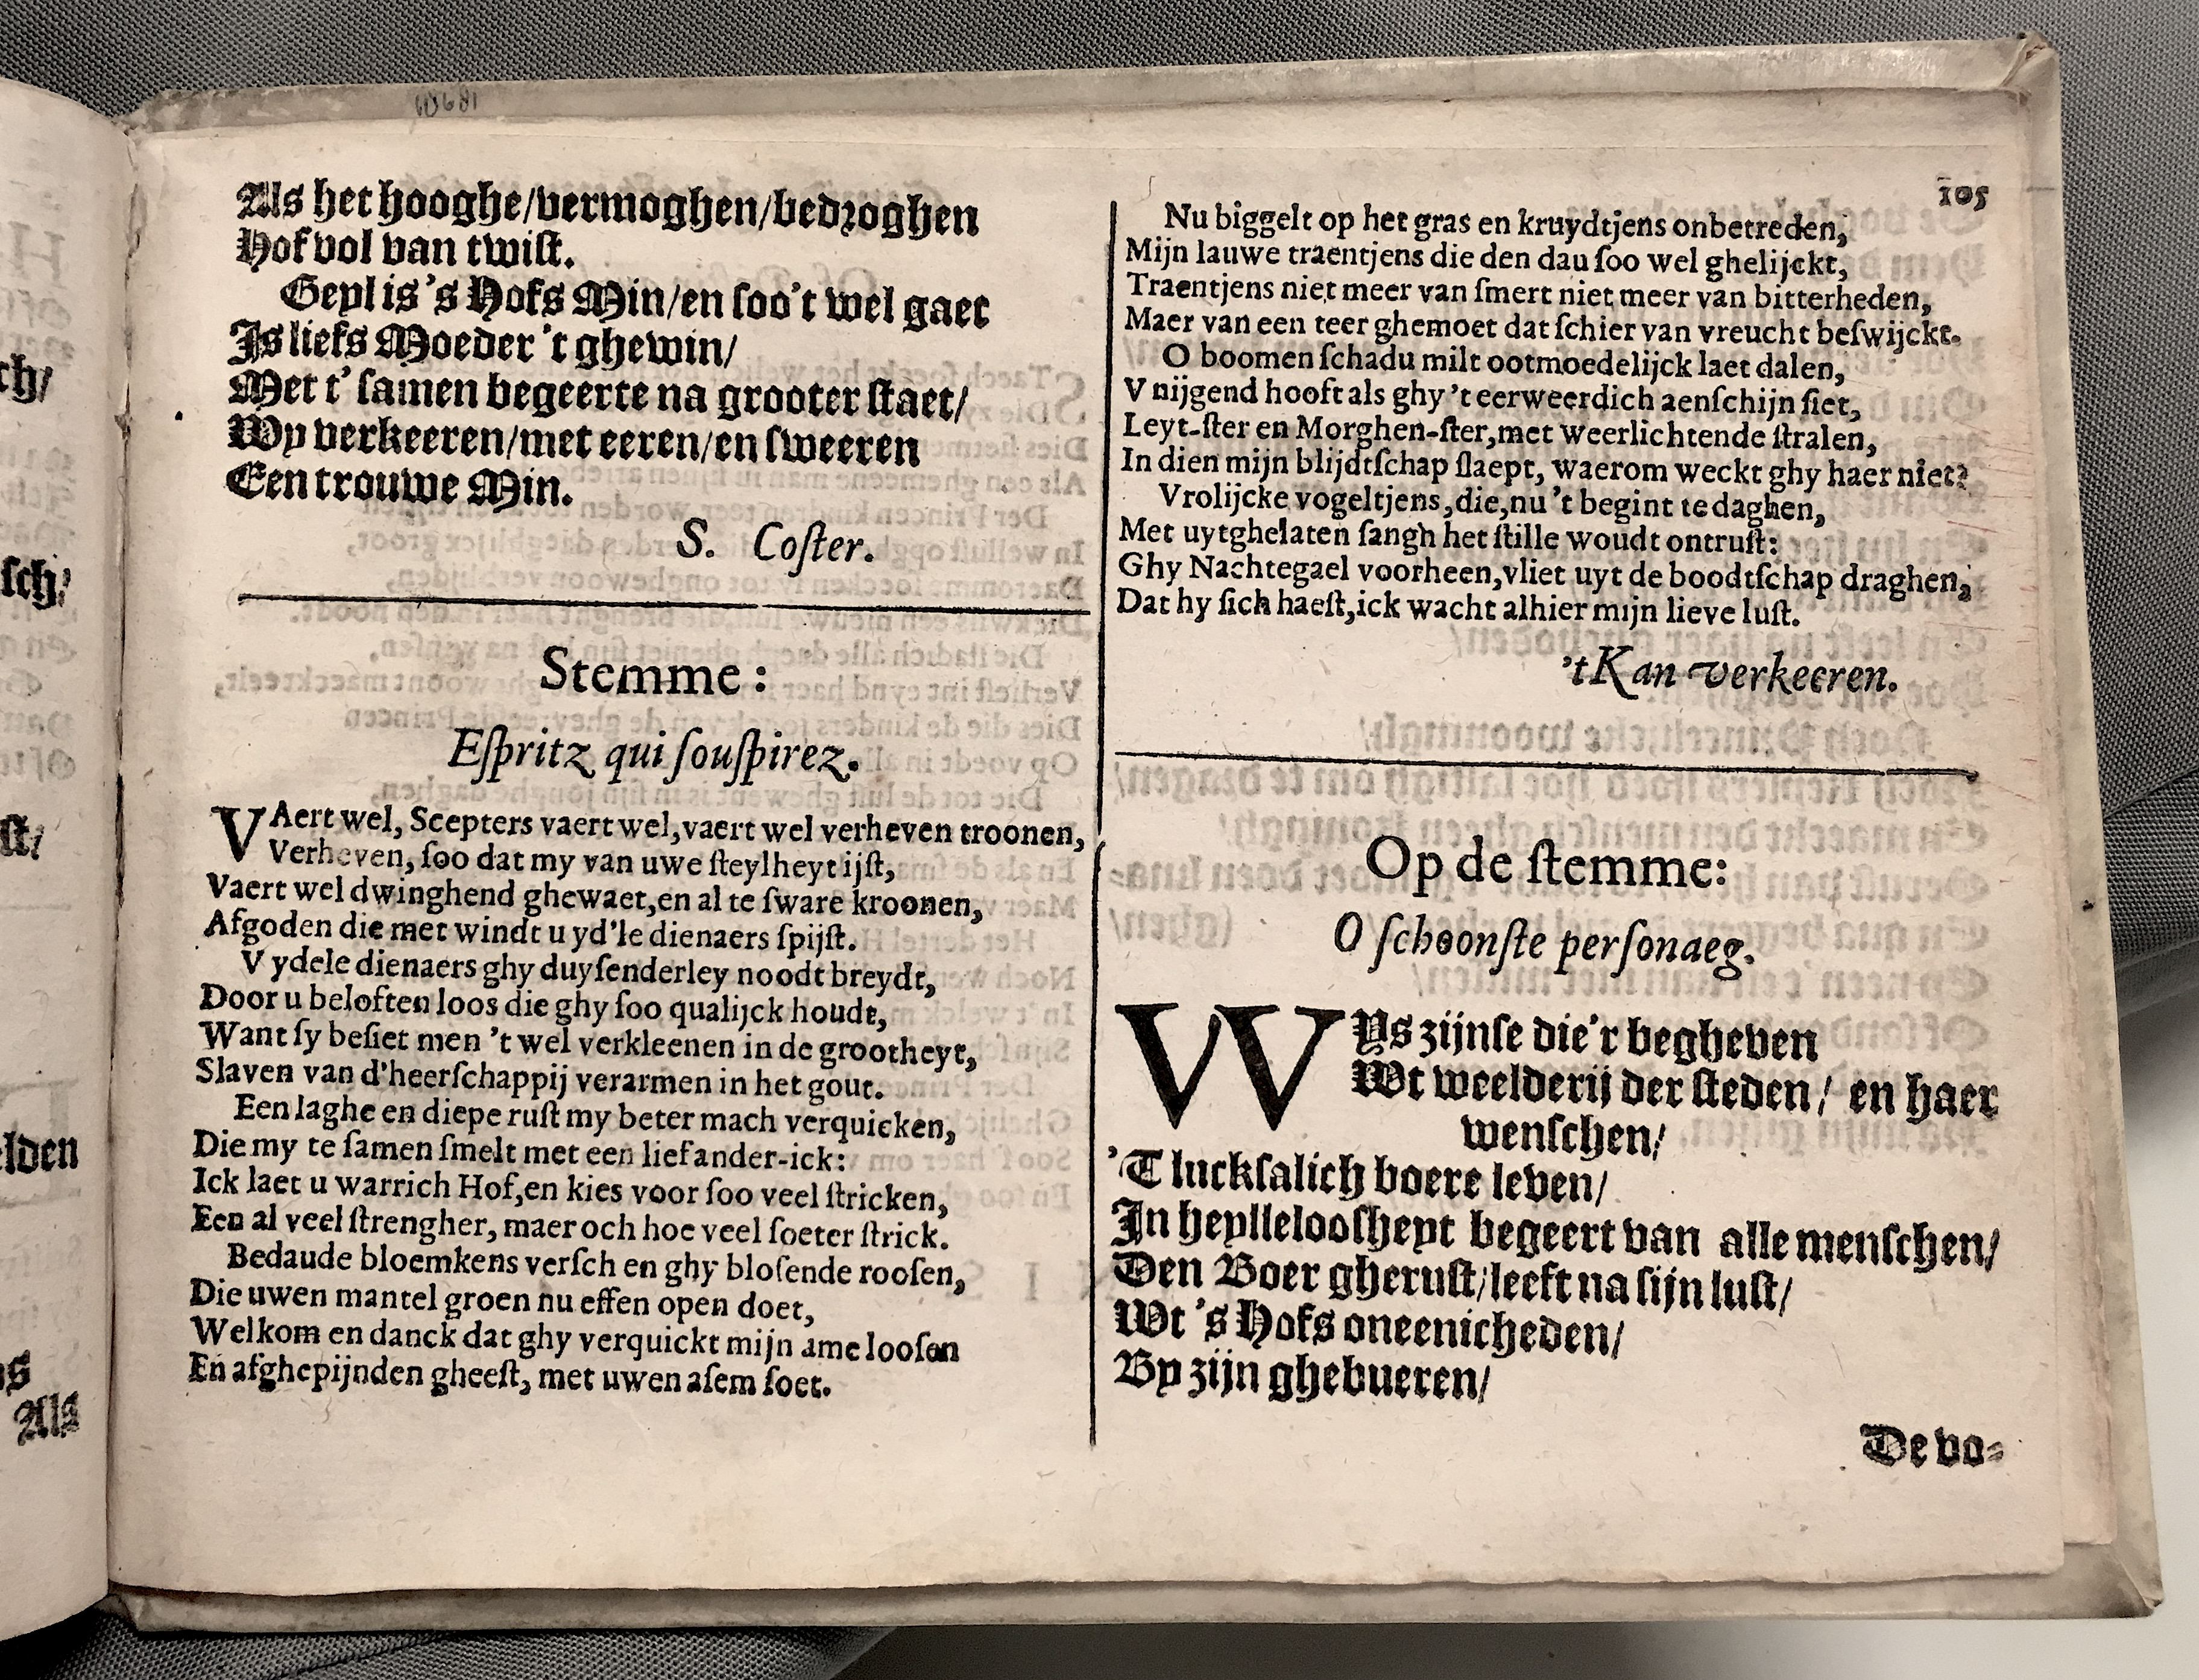 Als het hooghe/vermoghen/bedroghen
Hof vol van twist.
Geyl is 's Hofs Min/en soo't wel gaet
Is liefs Moeder 't ghewin/
Met t' samen begeerte na grooter staet/
Wy verkeeren/met eeren/en sweeren
Een trouwe Min.
S. Coster.
Stemme:
Espritz qui souspirez.
VAert wel, Scepters vaert wel,vaert wel verheven troonen,
Verheven, soo dat my van uwe steylheyt ijst,
Vaert wel dwinghend ghewaet,en al te sware kroonen,
Afgoden die met windt u yd'le dienaers spijst.
V ydele dienaers ghy duysenderley noodt breydt,
Door u beloften loos die ghy soo qualijck houdt,
Want sy besiet men 't wel verkleenen in de grootheyt,
Slaven van d'heerschappij verarmen in het gout.
Een laghe en diepe rust my beter mach verquicken,
Die my te samen smelt met een lief ander-ick:
Ick laet u warrich Hof,en kies voor soo veel stricken,
Een al veel strengher, maer och hoe veel soeter strick.
Bedaude bloemkens versch en ghy blosende roosen,
Die uwen mantel groen nu effen open doet,
Welkom en danck dat ghy verquickt mijn ameloosen
En afghepijnden gheest, met uwen asem soet.
105
Nu biggelt op het gras en kruydtjens onbetreden,
Mijn lauwe traentjens die den dau soo wel ghelijckt,
Traentjens niet meer van smert niet meer van bitterheden,
Maer van een teer ghemoet dat schier van vreucht beswijckt.
O boomen schadu milt ootmoedelijck laet dalen,
V nijgend hooft als ghy 't eerweerdich aenschijn siet,
Leyt-ster en Morghen-ster,met weerlichtende stralen,
In dien mijn blijdtschap slaept, waerom weckt ghy haer niet?
Vrolijcke vogeltjens,die,nu 't begint te daghen,
Met uytghelaten sangh het stille woudt ontrust:
Ghy Nachtegael voorheen,vliet uyt de boodtschap draghen,
Dat hy sich haest,ick wacht alhier mijn lieve lust.
't Kan verkeeren.
Op de stemme:
O schoonste personaeg.
WYs zijnse die'r begheven
Wt weelderij der steden/ en haer
wenschen/
'T lucksalich boere leven/
In heyllelooshept begeert van alle menschen/
Den Boer gherust/leeft na sijn lust/
Wt 's Hofs oneenicheden/
By zijn ghebueren/
De vo-
ch/
sch/
st/
elden
Als